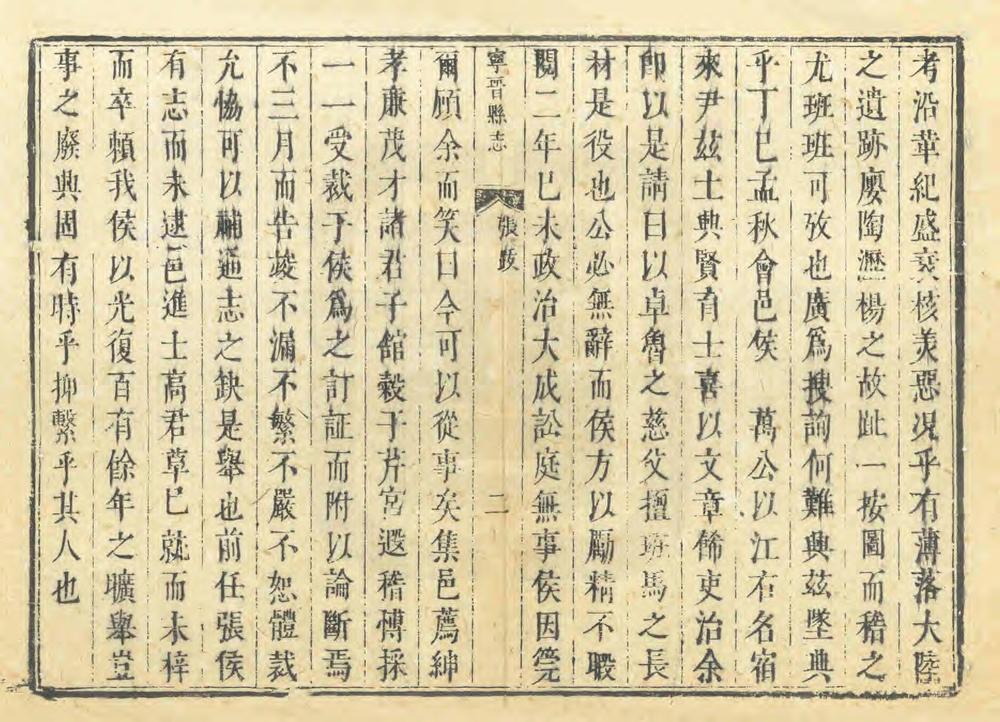 考沿革紀盛衰核美惡况乎有薄落大陸
之遺跡廮陶瀝楊之故趾一按圖而稽之
尤班班可攷也廣爲搜詢何難典茲墜典
乎丁巳孟秋會邑侯　萬公以江右名宿
來尹茲土典賢育士喜以文章佈吏治余
卽以是請曰以卓魯之慈父擅班馬之長
材是役也公必無辭而侯方以勵精不暇
閱二年巳未政治大成訟庭無事侯因筦
寧晉縣志　張跋　二
爾顧余而笑曰今可以從事矣集邑薦紳
孝亷茂才諸君子館穀于芹宮遐稽愽採
一一受裁于侯爲之訂証而附以論斷焉
不三月而告竣不漏不繁不嚴不恕體裁
允協可以輔通志之缺是舉也前任張侯
有志而未逮邑進士高君草巳就而未梓
而卒賴我侯以光復百有餘年之曠舉豈
事之廢興固有時乎抑繫乎其人也